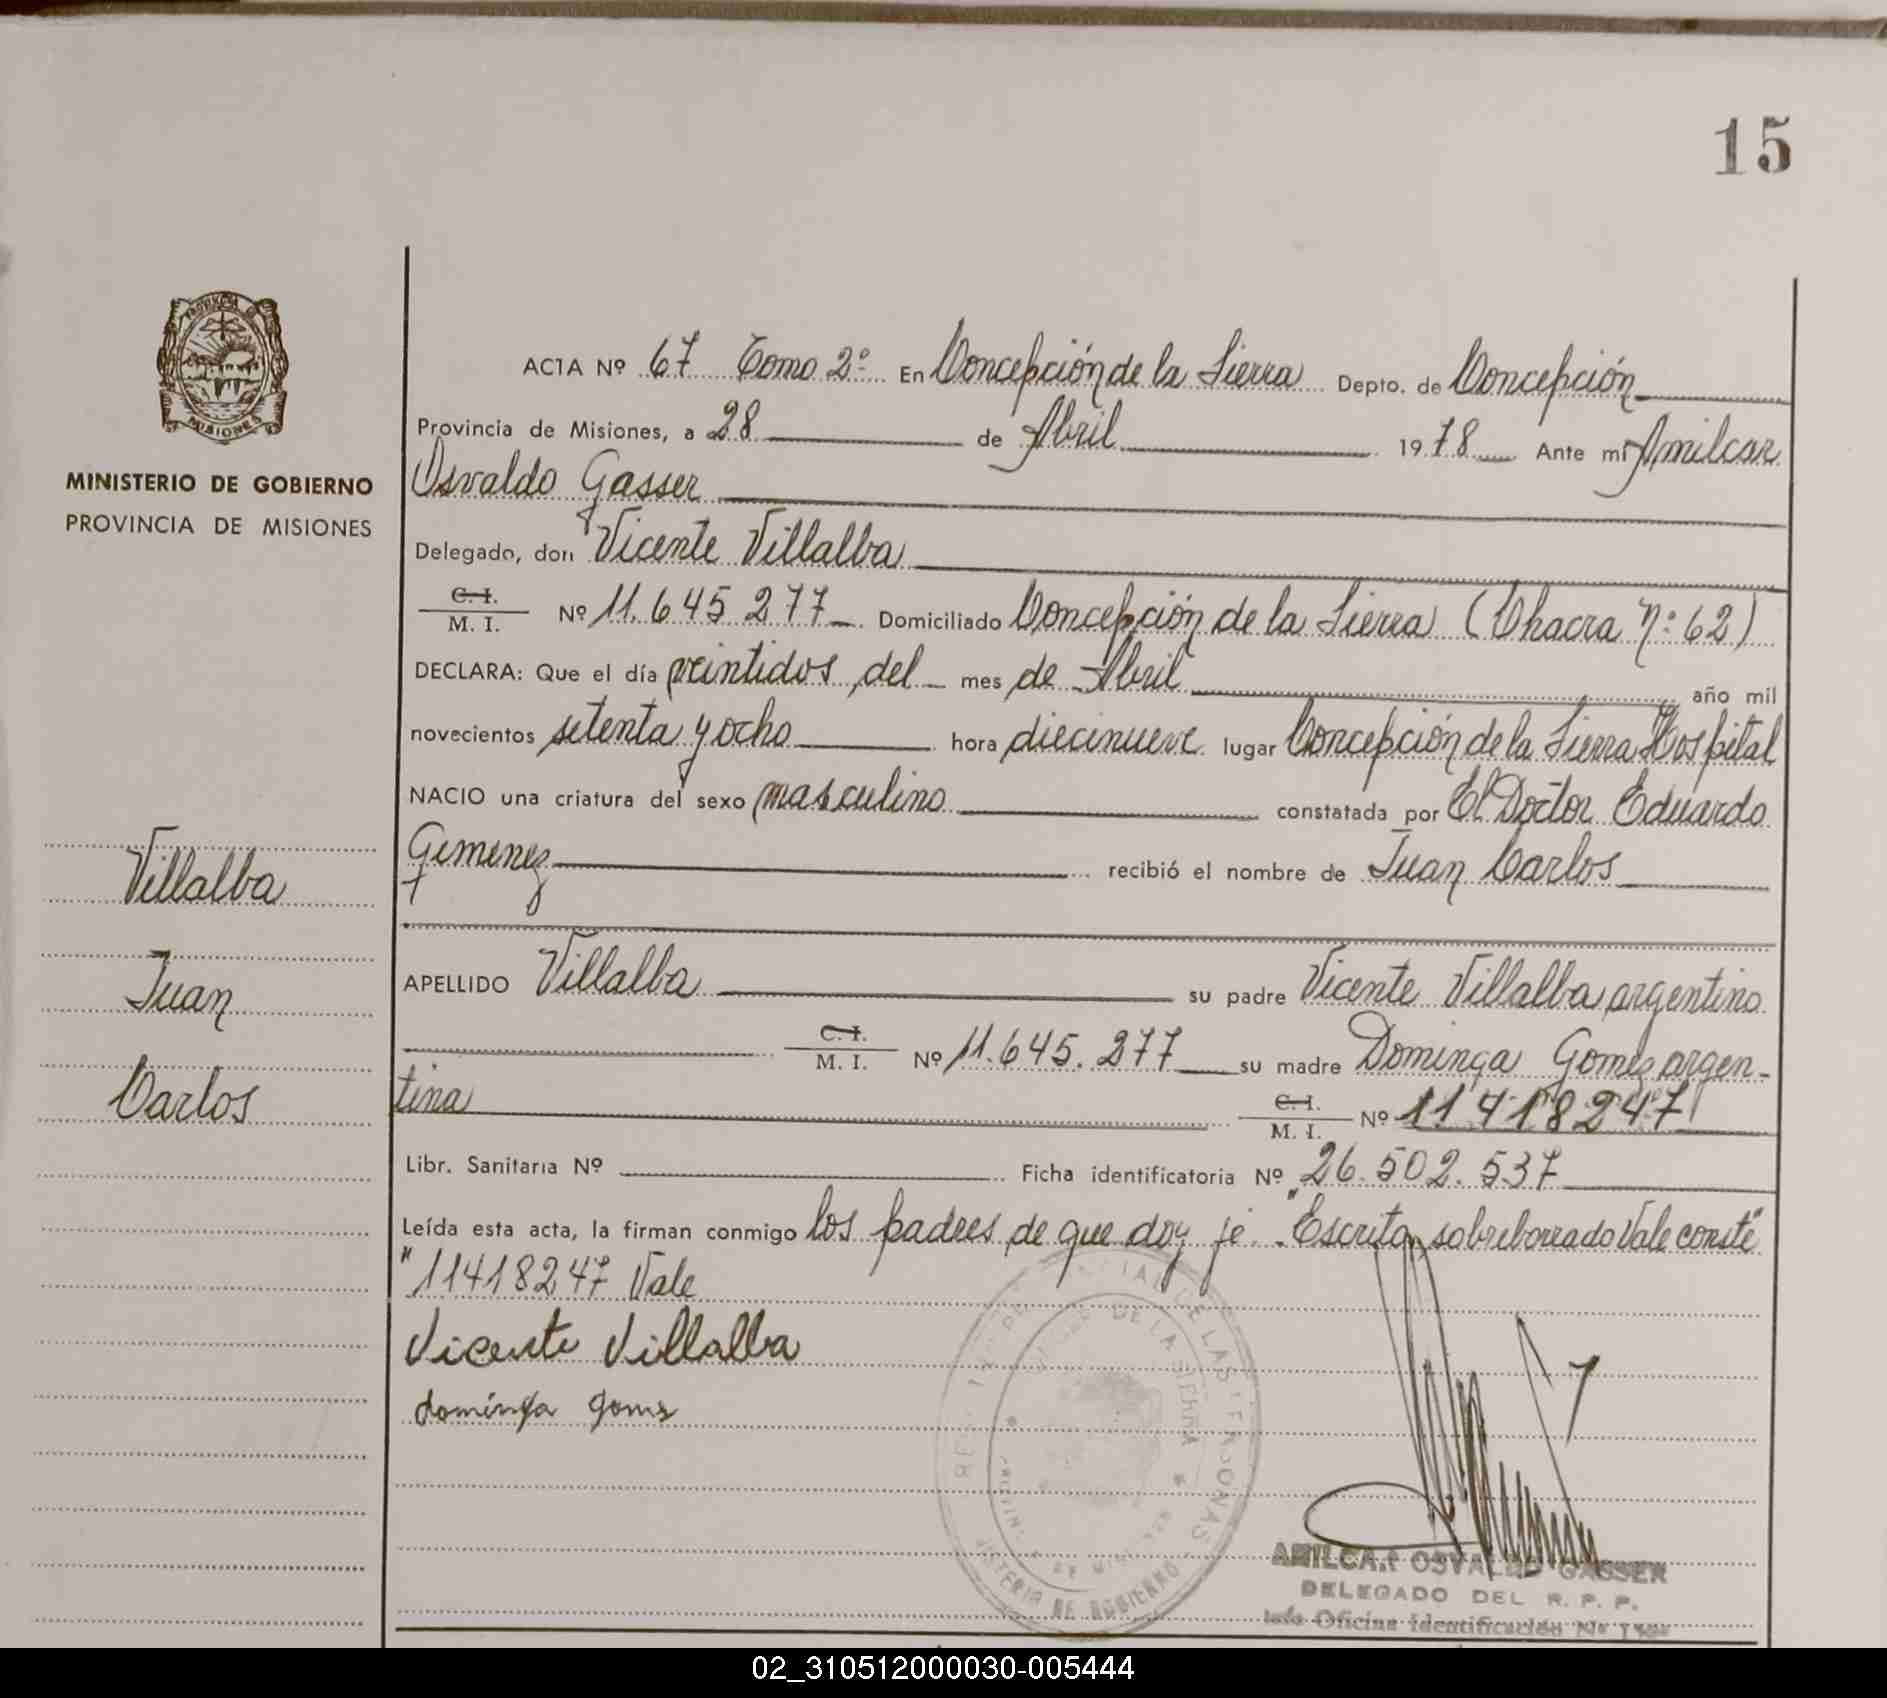 15
PROVINCIA DE
MISIONES
MINISTERIO DE GOBIERNO
PROVINCIA DE MISIONES
Villalba
Juan
Carlos
ACTA Nº 67 Tomo 2º En Concepción de la Sierra Depto. de Concepción
Provincia de Misiones, a 28 de Abril 1978 Ante mí Amilcar
Osvaldo Gasser
Delegado, don Vicente Villalba
C. I.
M. I. Nº 11.645.277 Domiciliado Concepción de la Sierra (Chacra Nº: 62)
DECLARA: Que el día veintidos del mes de Abril año mil
novecientos setenta y ocho hora diecinueve lugar Concepción de la Sierra Hospital
NACIO una criatura del sexo masculino constatada por El Doctor Eduardo
Gimenez recibió el nombre de Juan Carlos
APELLIDO Villalba su padre Vicente Villalba argentino
C. I.
M. I. Nº 11.645.277 su madre Dominga Gomez argen-
tina C. I.
M. I. Nº 11418247
Libr. Sanitaria Nº Ficha identificatoria Nº 26.502.537
Leída esta acta, la firman conmigo los padres de que doy fé. "Escrito sobreborreado Vale conste"
"11418247 Vale
Vicente Villalba
dominga gome
DE LAS PERSONAS
DE LA SIERRA
MINISTERIO DE GOBIERNO
AMILCAR OSVALDO GASSER
DELEGADO DEL R. P. P.
Jefe Oficina Identificación Nº
02_310512000030-005444